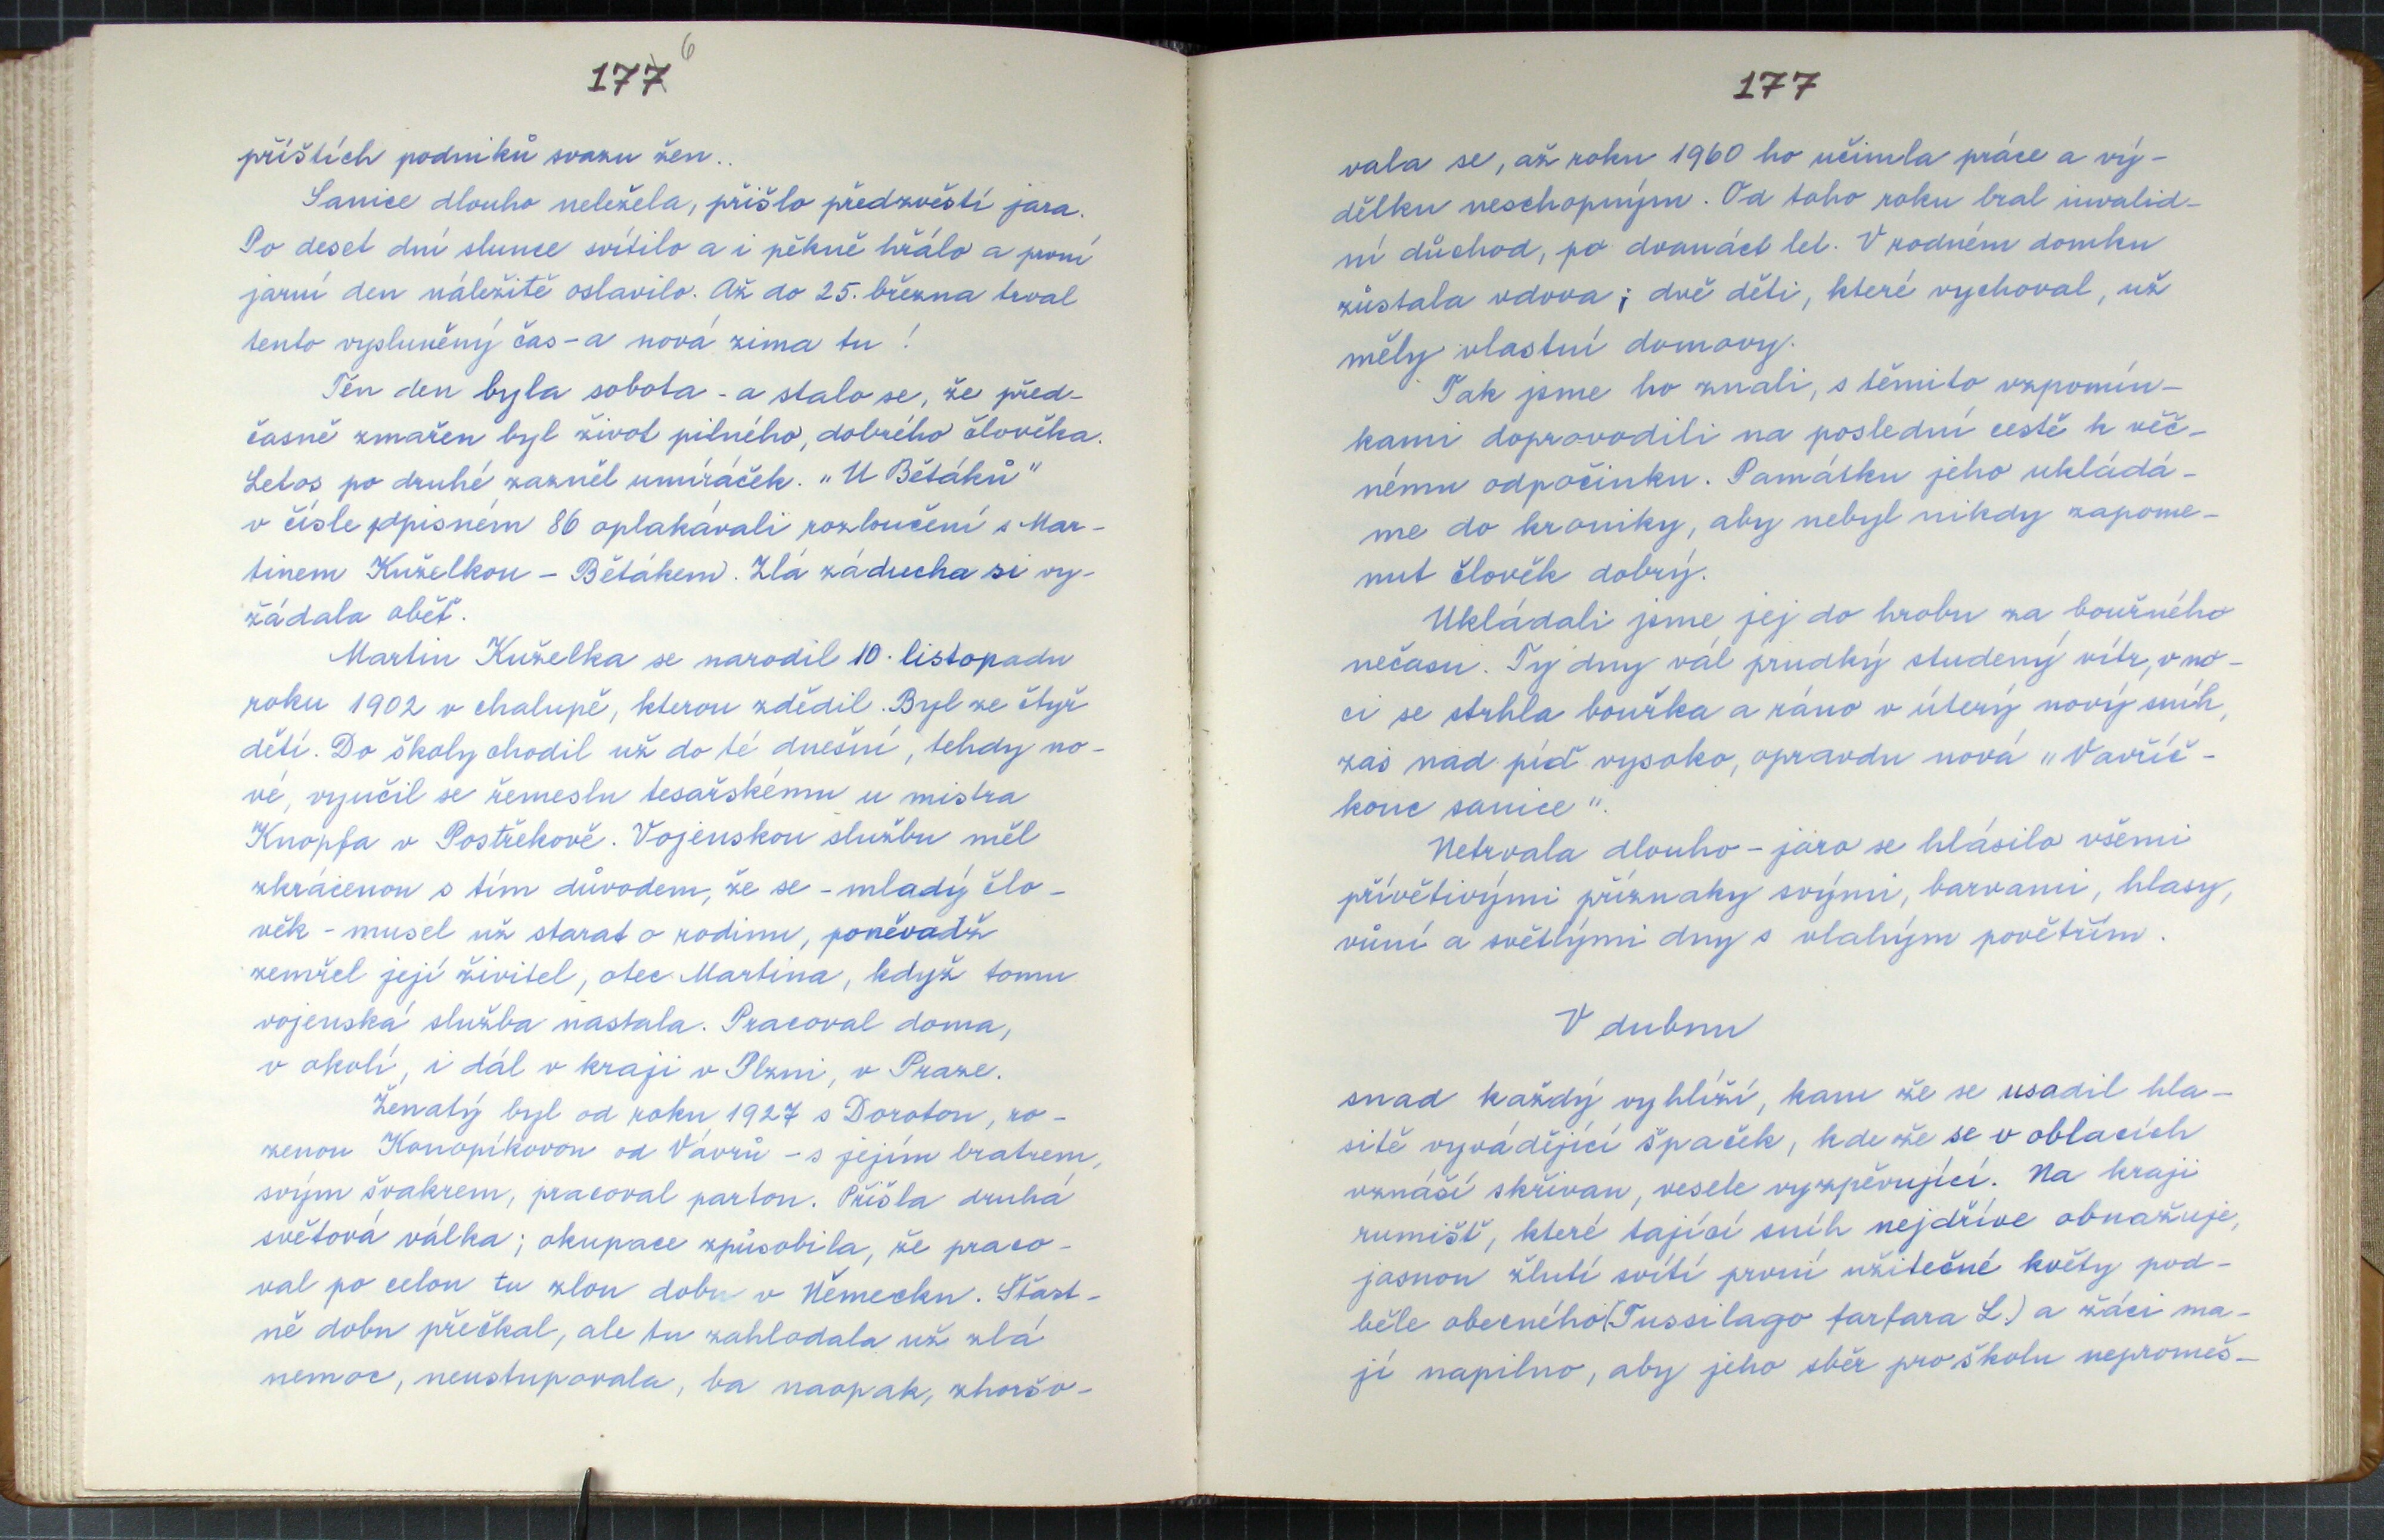 177 6
příštích podniků svazu žen..
Sanice dlouho neležela, přišlo předzvěstí jara.
Po deset dní slunce svítilo a i pěkně hřálo a první
jarní den náležitě oslavilo. Až do 25. března trval
tento vysluněný čas - a nová zima tu!
Ten den byla sobota - a stalo se, že před-
časně zmařen byl život pilného, dobrého člověka.
Letos po druhé zazněl umíráček. „U Bětáků"
v čísle popisném 86 oplakávali rozloučení s Mar-
tinem Kuželkou - Bětákem. Zlá záducha si vy-
žádala oběť.
Martin Kuželka se narodil 10. listopadu
roku 1902 v chalupě, kterou zdědil. Byl ze čtyř
dětí. Do školy chodil už do té dnešní, tehdy no-
vé, vyučil se řemeslu tesařskému u mistra
Knopfa v Postřekově. Vojenskou službu měl
zkrácenou s tím důvodem, že se - mladý člo-
věk - musel už starat o rodinu, poněvadž
zemřel její živitel, otec Martina, když tomu
vojenská služba nastala. Pracoval doma,
v okolí, i dál v kraji v Plzni, v Praze.
Ženatý byl od roku 1927 s Dorotou, ro-
zenou Konopíkovou od Vávrů - s jejím bratrem,
svým švakrem, pracoval partou. Přišla druhá
světová válka; okupace způsobila, že praco-
val po celou tu zlou dobu v Německu. Šťast-
ně dobu přečkal, ale tu zahlodala už zlá
nemoc, neustupovala, ba naopak, zhoršo-
177
vala se, až roku 1960 ho učinila práce a vý-
dělku neschopným. Od toho roku bral invalid-
ní důchod, po dvanáct let. V rodném domku
zůstala vdova; dvě děti, které vychoval, už
měly vlastní domovy.
Tak jsme ho znali, s těmito vzpomín-
kami doprovodili na poslední cestě k věč-
nému odpočinku. Památku jeho ukládá-
me do kroniky, aby nebyl nikdy zapome-
nut člověk dobrý.
Ukládali jsme jej do hrobu za bouřného
nečasu. Ty dny vál prudký studený vítr, v no-
ci se strhla bouřka a ráno v úterý nový sníh,
zas nad píď vysoko, opravdu nová „Vavříč-
kouc sanice".
Netrvala dlouho - jaro se hlásilo všemi
přívětivými příznaky svými, barvami, hlasy,
vůní a světlými dny s vlahým povětřím.
V dubnu
snad každý vyhlíží, kam že se usadil hla-
sitě vyvádějící špaček, kde že se v oblacích
vznáší skřivan, vesele vyzpěvující. Na kraji
rumišť, které tající sníh nejdříve obnažuje,
jasnou žlutí svítí první užitečné květy pod-
běle obecného (Tussilago farfara L.) a žáci ma-
jí napilno, aby jeho sběr pro školu nepromeš-